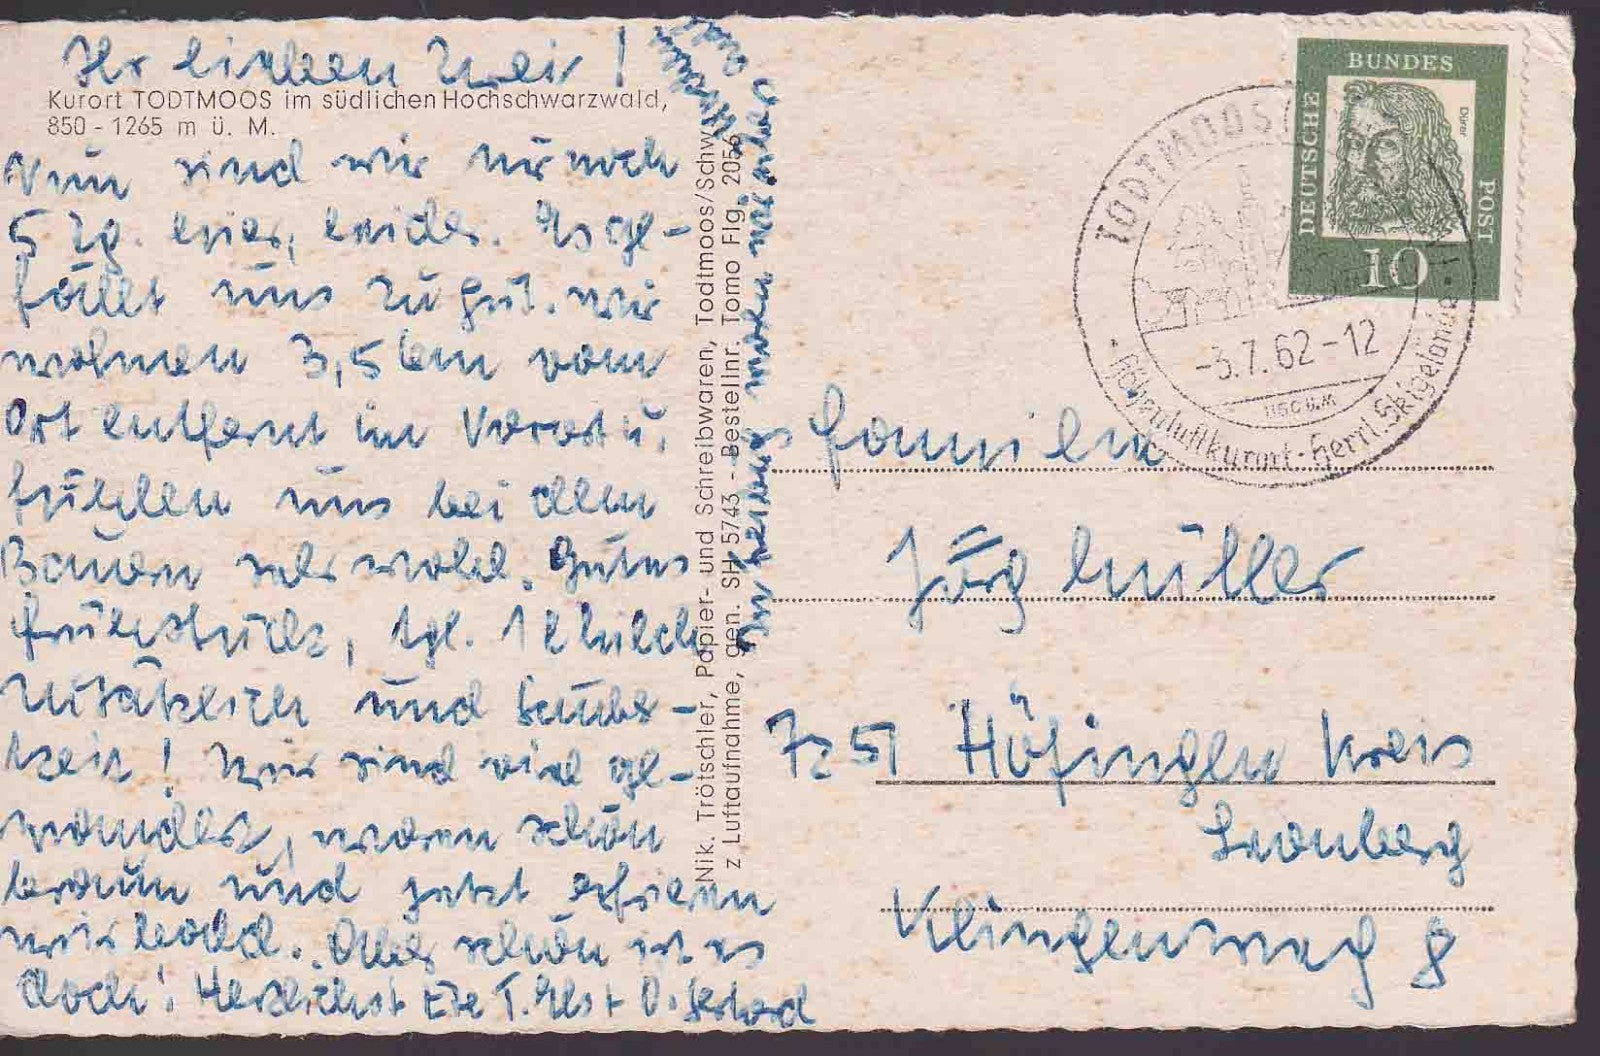 Ihr lieben Zwei!
Kurort TODTMOOS im südlichen Hochschwarzwald,
850 - 1265 m ü. M.
Nun sind wir nur noch
5 Tg. hier, leider. Es ge-
fällt uns zu gut. Wir
wohnen 3,5 km vom
Ort entfernt im Vorort u.
fühlen uns bei dem
Bauern sehr wohl. Gutes
Frühstück, tgl. 1 l Milch
zusätzlich und Sauber-
keit! Wir sind viel ge-
wandert, waren schön
braun und jetzt erfrieren
wir bald. Aber schön ist es
doch! Herzlichst Eure T. Else + O.
Nik. Trötschler, Papier- und Schreibwaren, Todtmoos/Schw.
z Luftaufnahme, gen. SH 5743 - Bestellnr. Tomo Flg. 2056
DEUTSCHE
BUNDES
POST
Dürer
10
TODTMOOS
-3.7.62-12
Höhenluftkurort · Herrl. Skigelände
Familie
Jürg Müller
7251 Höfingen Kreis
Leonberg
Klingenweg 8